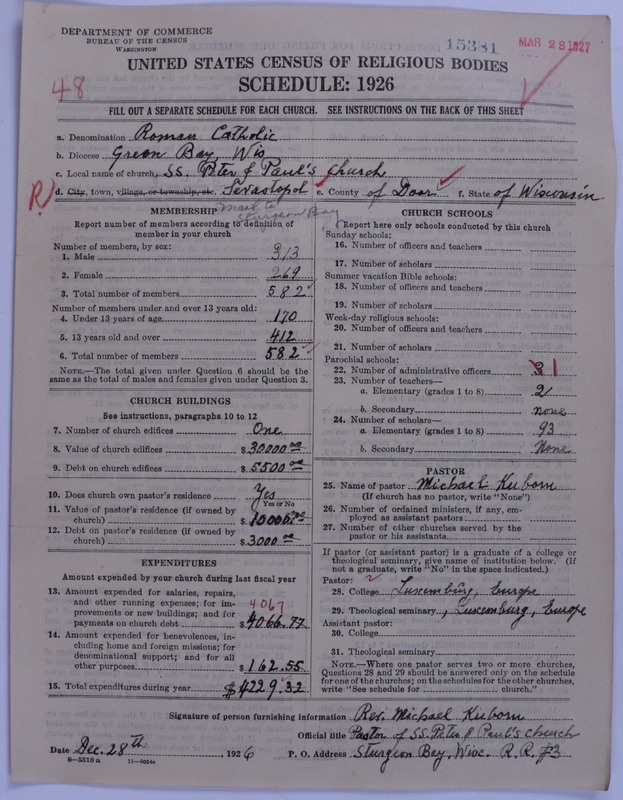 DEPARTMENT OF COMMERCE
BUREAU OF THE CENSUS
WASHINGTON
15381
MAR 28 1927
UNITED STATES CENSUS OF RELIGIOUS BODIES
SCHEDULE: 1926
48
FILL OUT A SEPARATE SCHEDULE FOR EACH CHURCH. SEE INSTRUCTIONS ON THE BACK OF THIS SHEET
a. Denomination Roman Catholic
b. Diocese Green Bay, Wis
c. Local name of church, SS. Peter & Paul's Church
R. d. City, town, village, or township, etc. Sevastopol e. County of Door f. State of Wisconsin
Mail to
Sturgeon Bay
MEMBERSHIP
Report number of members according to definition of
member in your church
Number of members, by sex:
1. Male 313
2. Female 269
3. Total number of members 582
Number of members under and over 13 years old:
4. Under 13 years of age 170
5. 13 years old and over 412
6. Total number of members 582
NOTE.—The total given under Question 6 should be the
same as the total of males and females given under Question 3.
CHURCH BUILDINGS
See instructions, paragraphs 10 to 12
7. Number of church edifices One
8. Value of church edifices $30000 00
9. Debt on church edifices $5500 00
10. Does church own pastor's residence Yes
Yes or No
11. Value of pastor's residence (if owned by
church) $10000.00
12. Debt on pastor's residence (if owned by
church) $3000 00
EXPENDITURES
Amount expended by your church during last fiscal year
13. Amount expended for salaries, repairs,
and other running expenses; for im-
provements or new buildings; and for
payments on church debt $4066.77
4067
14. Amount expended for benevolences, in-
cluding home and foreign missions; for
denominational support; and for all
other purposes $162.55
15. Total expenditures during year $4229.32
CHURCH SCHOOLS
Report here only schools conducted by this church
Sunday schools:
16. Number of officers and teachers
17. Number of scholars
Summer vacation Bible schools:
18. Number of officers and teachers
19. Number of scholars
Week-day religious schools:
20. Number of officers and teachers
21. Number of scholars
Parochial schools:
22. Number of administrative officers 3 1
23. Number of teachers—
a. Elementary (grades 1 to 8) 2
b. Secondary none
24. Number of scholars—
a. Elementary (grades 1 to 8) 93
b. Secondary None
PASTOR
25. Name of pastor Michael Kuborn
(If church has no pastor, write "None")
26. Number of ordained ministers, if any, em-
ployed as assistant pastors
27. Number of other churches served by the
pastor or his assistants
If pastor (or assistant pastor) is a graduate of a college or
theological seminary, give name of institution below. (If
not a graduate, write "No" in the space indicated.)
Pastor:
28. College Luxemburg, Europe
29. Theological seminary, Luxemburg, Europe
Assistant pastor:
30. College
31. Theological seminary
NOTE.—Where one pastor serves two or more churches,
Questions 28 and 29 should be answered only on the schedule
for one of the churches; on the schedules for the other churches,
write "See schedule for church."
Signature of person furnishing information Rev. Michael Kuborn
Official title Pastor of SS. Peter & Paul's Church
Date Dec. 28th, 1926 P. O. Address Sturgeon Bay, Wisc. R. R. #3
8—5313 a